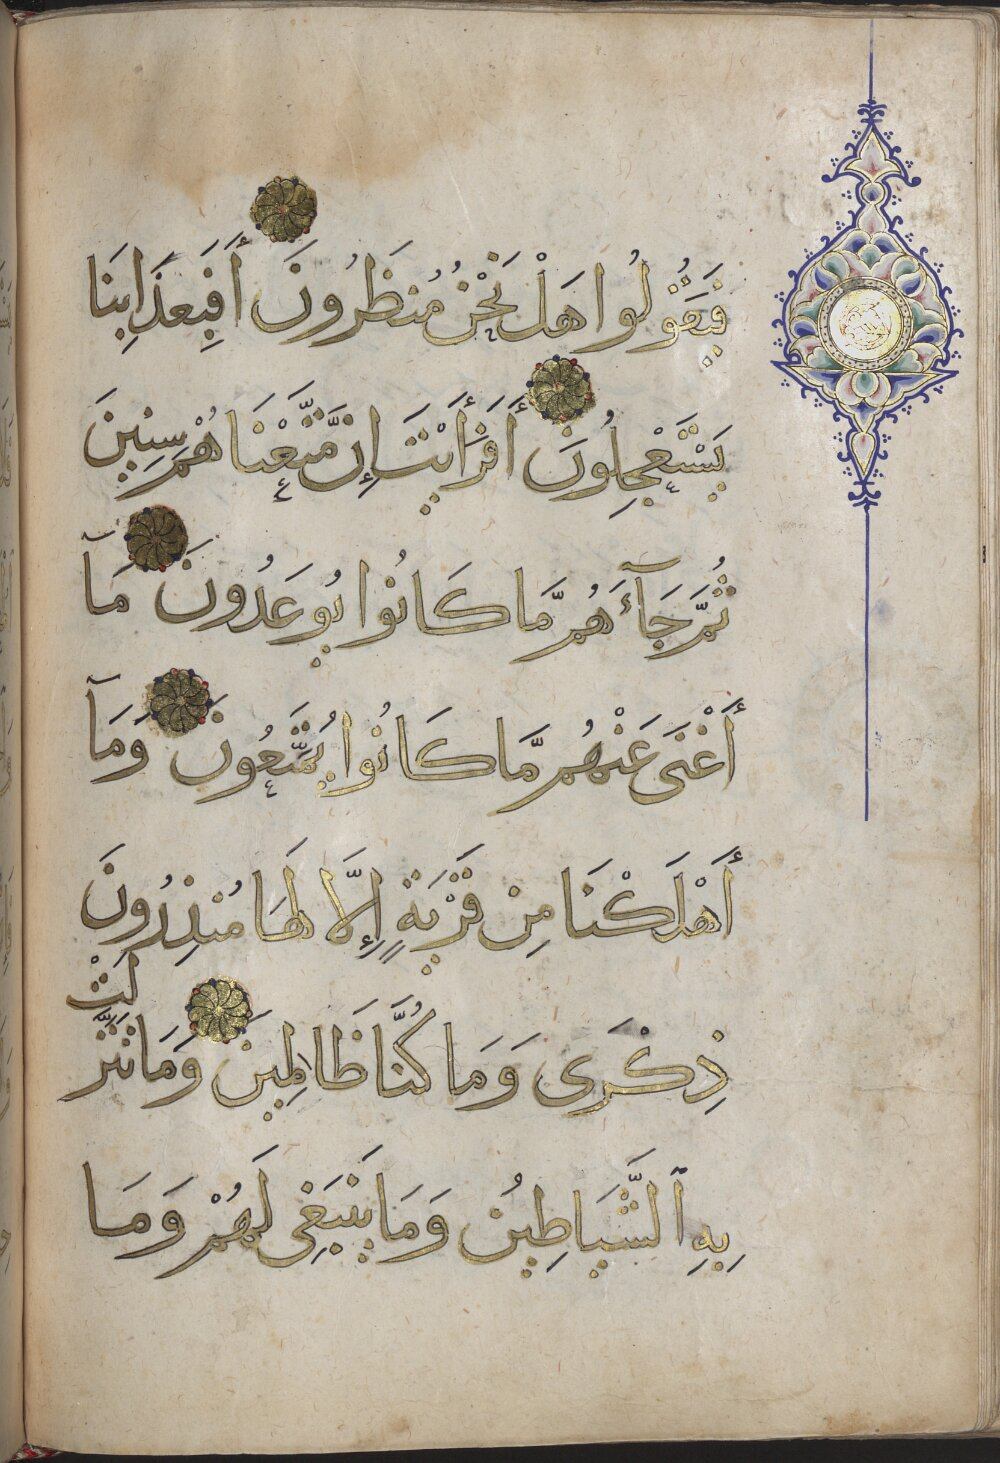 فَيَقُولُوا هَلْ نَحْنُ مُنظَرُونَ أَفَبِعَذَابِنَا
يَسْتَعْجِلُونَ أَفَرَأَيْتَ إِن مَّتَّعْنَاهُمْ سِنِينَ
ثُمَّ جَآءَهُم مَّا كَانُوا يُوعَدُونَ مَآ
أَغْنَى عَنْهُم مَّا كَانُوا يُمَتَّعُونَ وَمَآ
أَهْلَكْنَا مِن قَرْيَةٍ إِلَّا لَهَا مُنذِرُونَ
ذِكْرَى وَمَا كُنَّا ظَالِمِينَ وَمَا تَنَزَّلَتْ
بِهِ ٱلشَّيَاطِينُ وَمَا يَنبَغِي لَهُمْ وَمَا